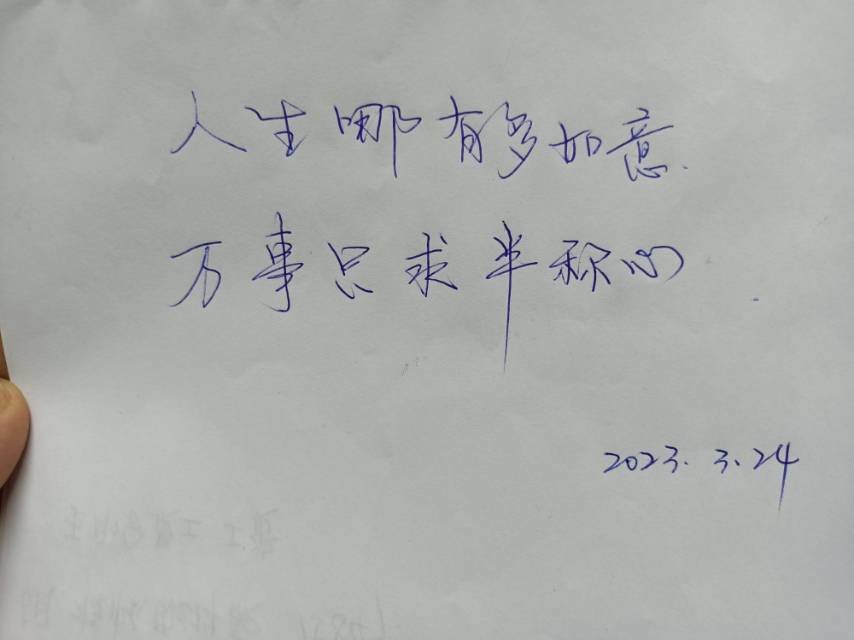 人生哪有多如意
万事只求半称心
2023.3.24